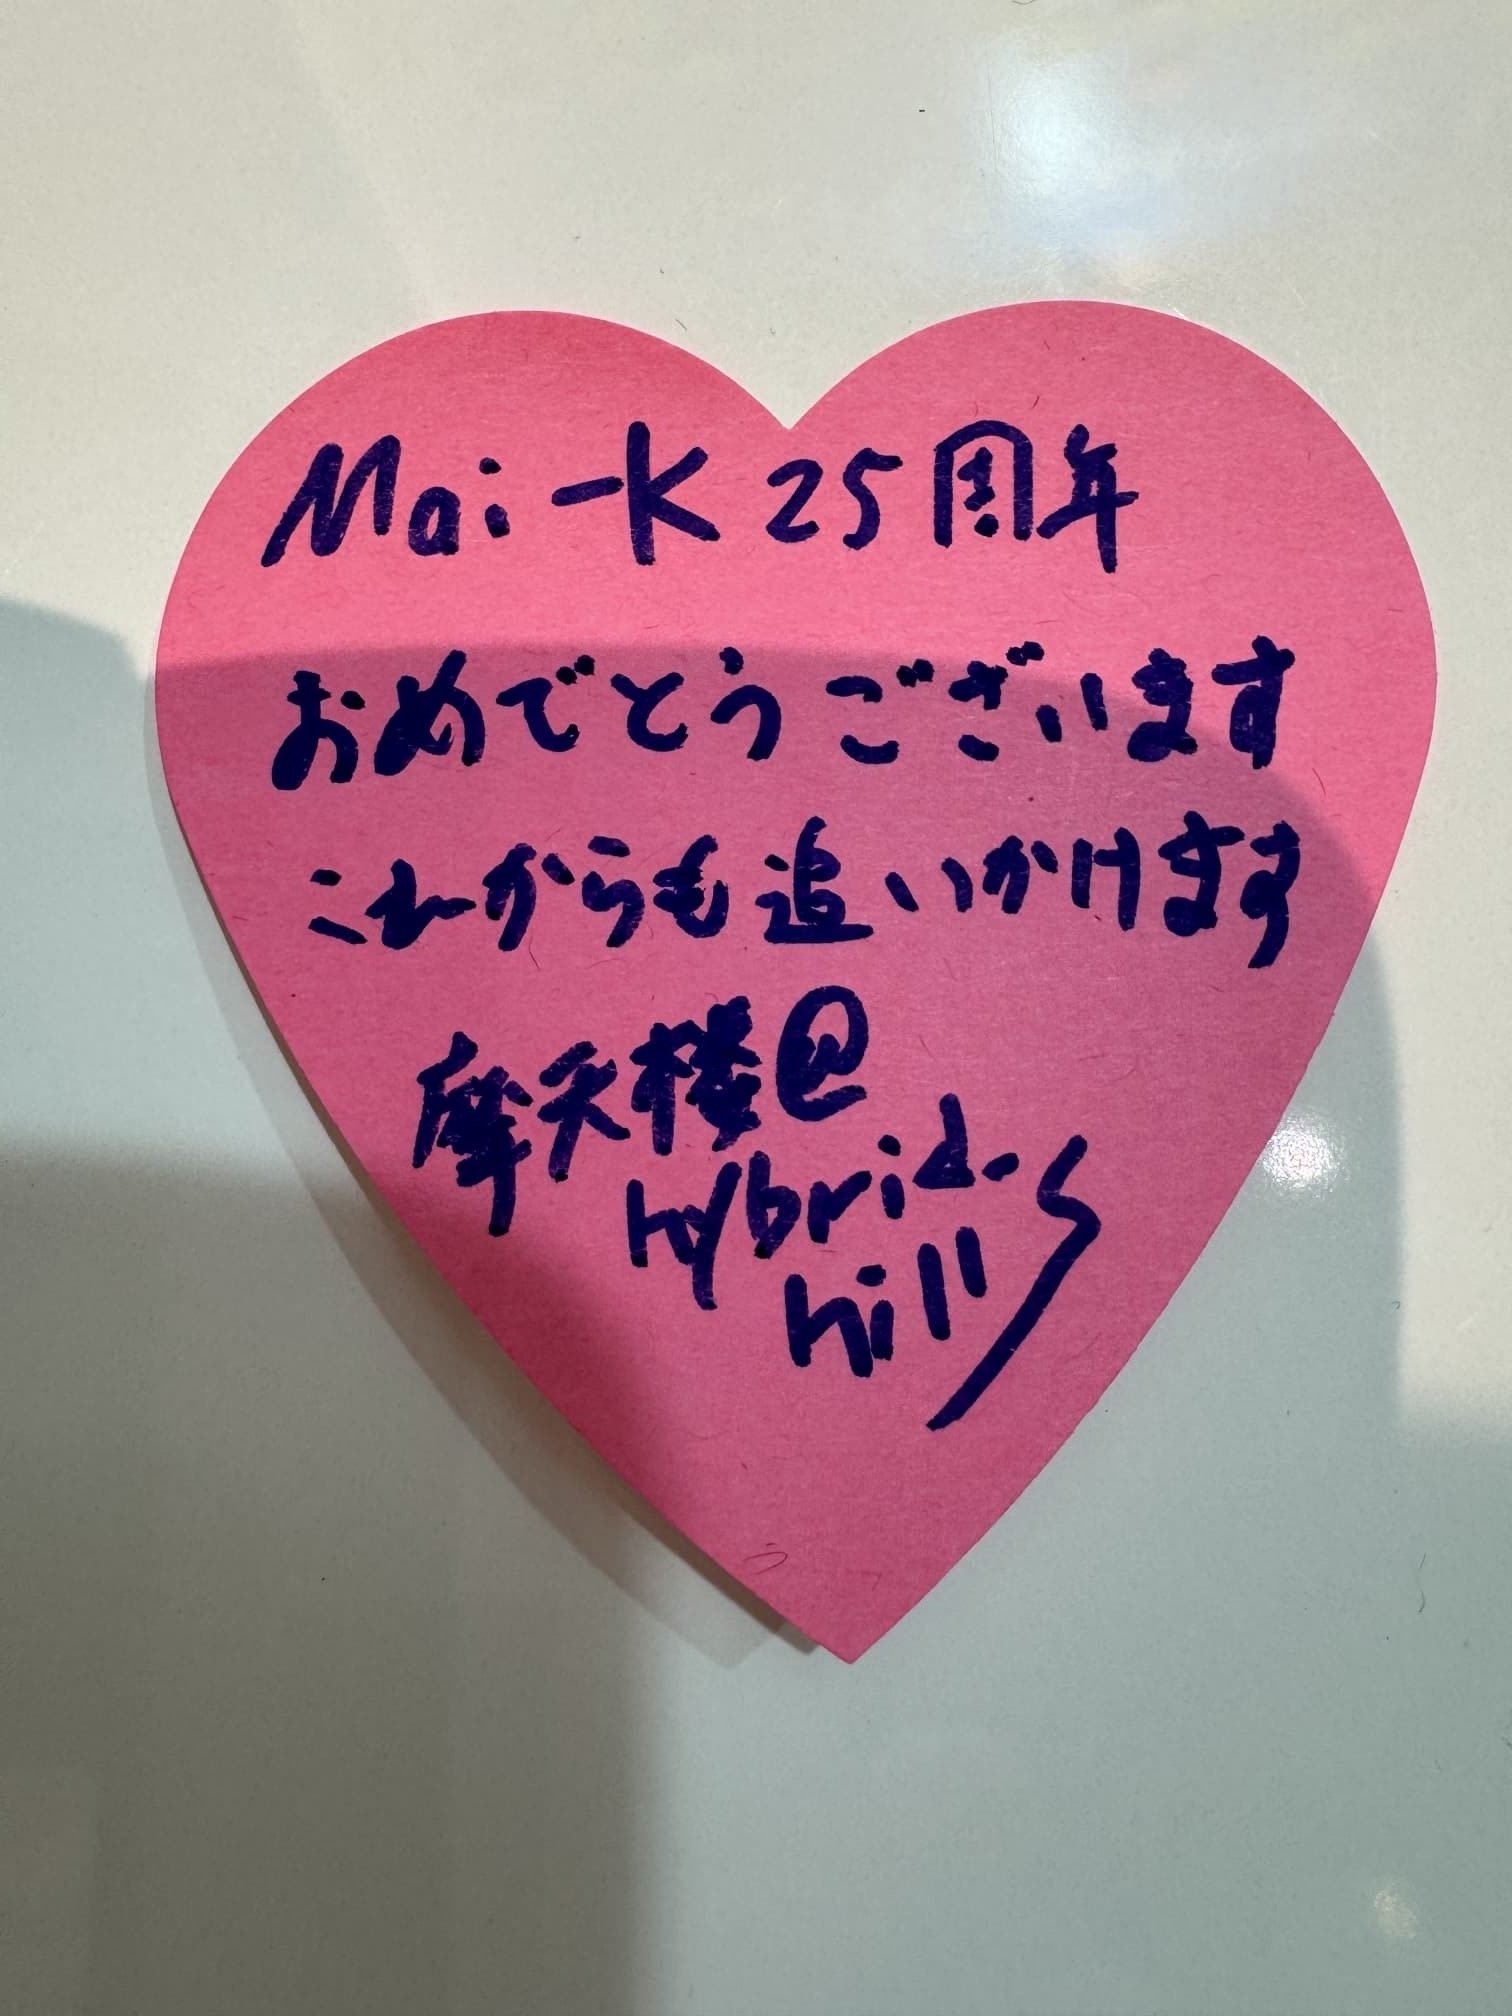 Mai-K 25周年
おめでとうございます
これからも追いかけます
摩天楼@
hybrid-
hills